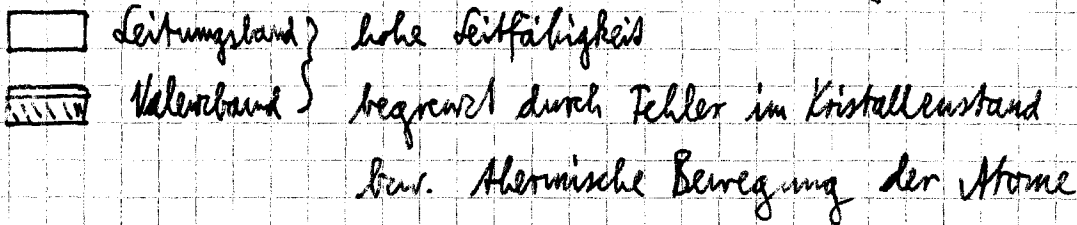 Leitungsband } hohe Leitfähigkeit
Valenzband } begrenzt durch Fehler im Kristallzustand
bzw. thermische Bewegung der Atome